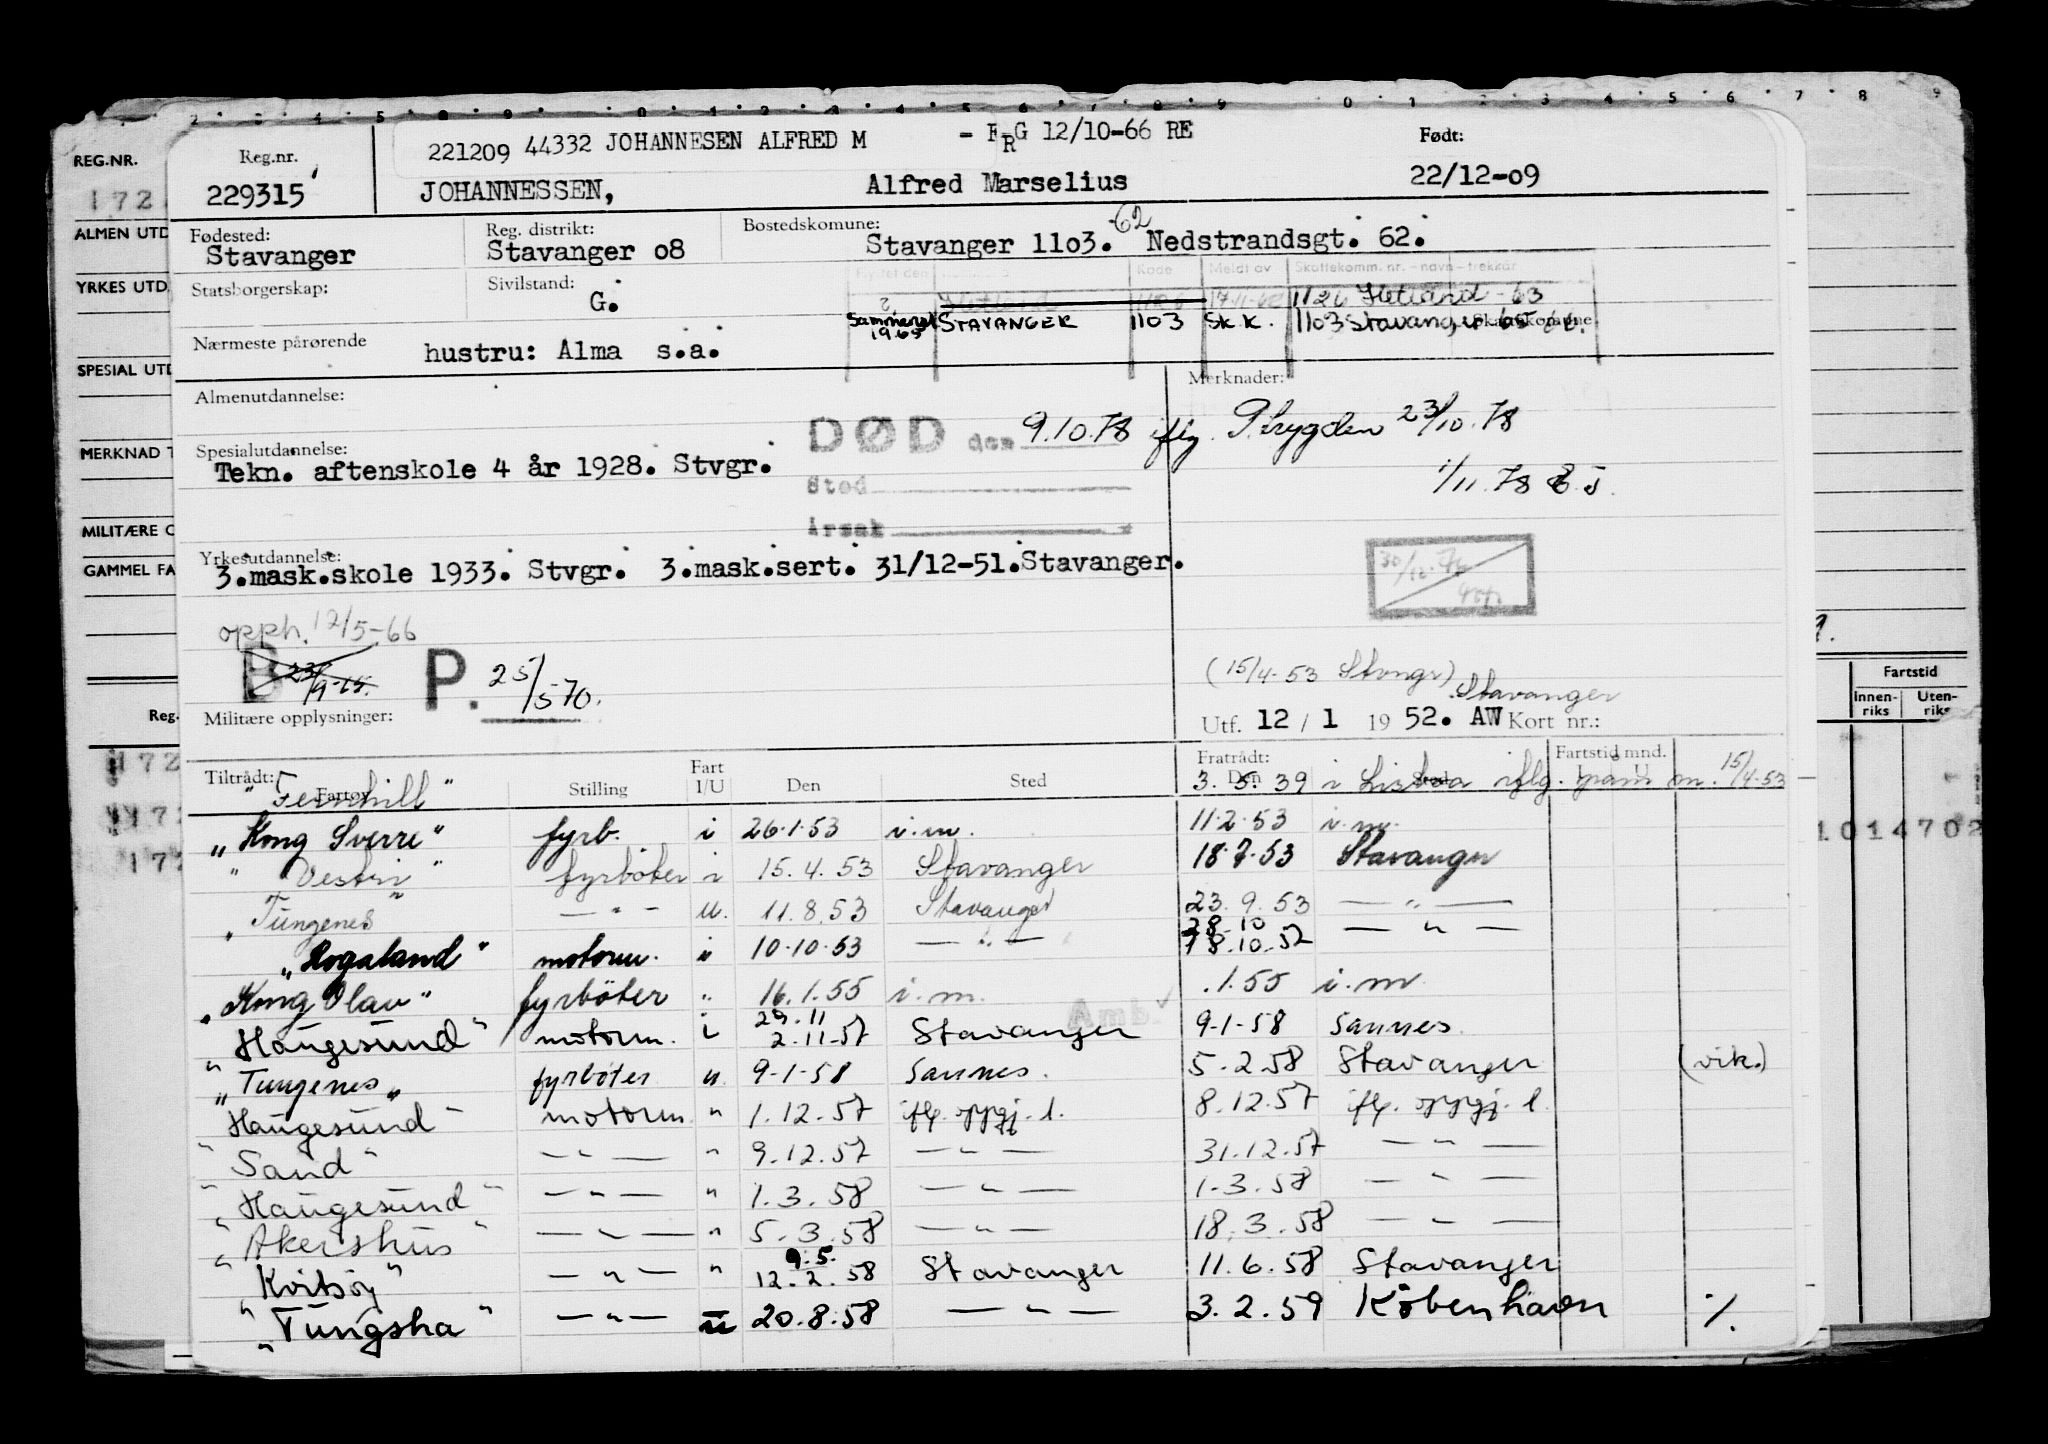 2 3 4 5 6 7 8 9 0 1 2 3 4 5 6 7 8 9 0 1 2 3 4 5 6 7 8 9
REG.NR. Reg.nr. 221209 44332 JOHANNESEN ALFRED M - FRG 12/10-66 RE Født:
172 229315 JOHANNESSEN, Alfred Marselius 22/12-09
ALMEN UTD Fødested: Reg. distrikt: Bostedskomune: 62
Stavanger Stavanger 08 Stavanger 1103. Nedstrandsgt. 62.
YRKES UTD. Statsborgerskap: Sivilstand: Flyttet den Kode Meldt av Skattekomm. nr. - navn - trekkår
G. ? Hetland 1126 Hetland - 63
Sommeren 1965 STAVANGER 1103 SK.K. 1103 Stavanger 65 66. Skattekomune
Nærmeste pårørende hustru: Alma s.a.
SPESIAL UTD
Almenutdannelse: Merknader:
DØD den 9.10.78 iflg. P.trygden 23/10.78
MERKNAD T Spesialutdannelse:
Tekn. aftenskole 4 år 1928. Stvgr. Sted 1/11.78 E.J.
MILITÆRE O Årsak
GAMMEL FA Yrkesutdannelse:
3.mask.skole 1933. Stvgr. 3.mask.sert. 31/12-51.Stavanger.
opph. 12/5-66
B 23/9-65. P. 25/5 70. (15/4-53 Stvngr) Stavanger
Reg. Militære opplysninger: Utf. 12 / 1 19 52. AW Kort nr.:
Fartstid
Innen-riks Uten-riks
Tiltrådt: Fart Fratrådt: Fartstid mnd.
Fartøy Stilling I/U Den Sted Den Sted I U
"Fernhill" 3.5.39 i Lisboa iflg. m. 15/4-53
"Kong Sverre" fyrb. i 26.1.53 i.m. 11.2.53 i.m.
"Vestri" fyrbøter i 15.4.53 Stavanger 18.7.53 Stavanger 1014702
"Tungenes" — " — u. 11.8.53 Stavanger 23.9.53 — " —
"Rogaland" motorm. i 10.10.53 — " — 28.10 18.10.52 — " —
"Kong Olav" fyrbøter " 16.1.55 i.m. .1.55 i.m.
Amb.
"Haugesund" motorm. i 29.11 2.11-57 Stavanger 9-1-58 Sannes.
"Tungenes" fyrbøter u. 9-1-58 Sannes. 5.2.58 Stavanger (vik.)
"Haugesund" motorm. " 1.12.57 ifg. oppgj. l. 8.12.57 ifg. oppgj. l.
"Sand" — " — " 9.12.57 — " — 31.12.57 — " —
"Haugesund" — " — " 1.3.58 — " — 1.3.58 — " —
"Akershus" — " — " 5.3.58 — " — 18.3.58 — " —
"Kvitsøy" — " — " 9.5. 12.2.58 Stavanger 11.6.58 Stavanger
"Tungsha" — " — u 20.8.58 — " — 3.2.59 København ./.